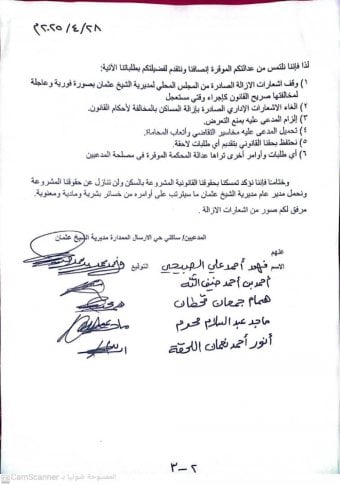 ٢٠٢٥/٤/٢٨م
لذا فإننا نلتمس من عدالتكم الموقرة إنصافنا ونتقدم لفضيلتكم بطلباتنا الآتية:
١) وقف اشعارات الازالة الصادرة من المجلس المحلي لمديرية الشيخ عثمان بصورة فورية وعاجلة
لمخالفتها صريح القانون كإجراء وقتي مستعجل
٢) الغاء الاشعارات الإداري الصادرة بإزالة المساكن بالمخالفة لأحكام القانون.
٣) إلزام المدعى عليه بمنع التعرض.
٤) تحميل المدعى عليه مخاسير التقاضي وأتعاب المحاماة.
٥) نحتفظ بحقنا القانوني بتقديم أي طلبات لاحقة.
٦) أي طلبات وأوامر أخرى تراها عدالة المحكمة الموقرة في مصلحة المدعيين
وختامنا فإننا نؤكد تمسكنا بحقوقنا القانونية المشروعة بالسكن ولن نتنازل عن حقوقنا المشروعة
ونحمل مدير عام مديرية الشيخ عثمان ما سيترتب على أوامره من خسائر بشرية ومادية ومعنوية.
مرفق لكم صور من اشعارات الازالة.
المدعيين/ ساكني حي الارسال الممدارة مديرية الشيخ عثمان
عنهم
الاسم فهود أحمد علي الصبيحي التوقيع
أحمد بن أحمد ضيف الله
همام جمعان قحطان
ماجد عبد السلام محرم
أنور أحمد نعمان اللحقة
٢-٣
الممسوحة ضوئيا بـ CamScanner